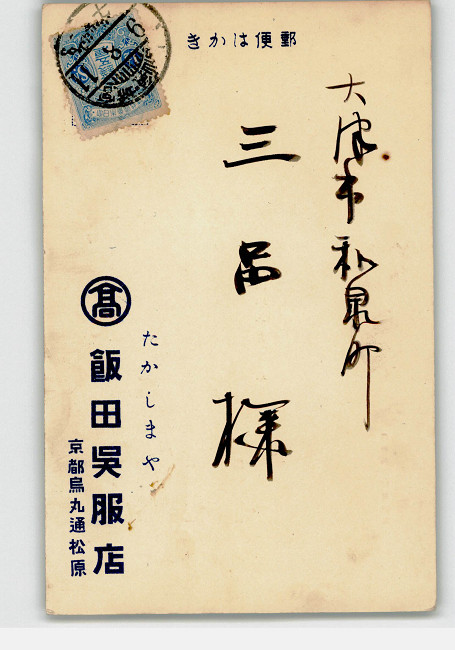 郵便はかき
大津市和泉町
三品様
たかしまや
髙
飯田呉服店
京都烏丸通松原